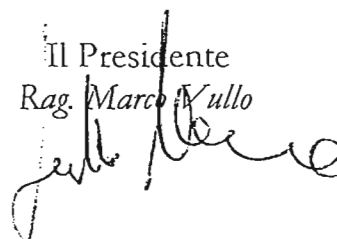 Il Presidente
Rag. Marco Vullo